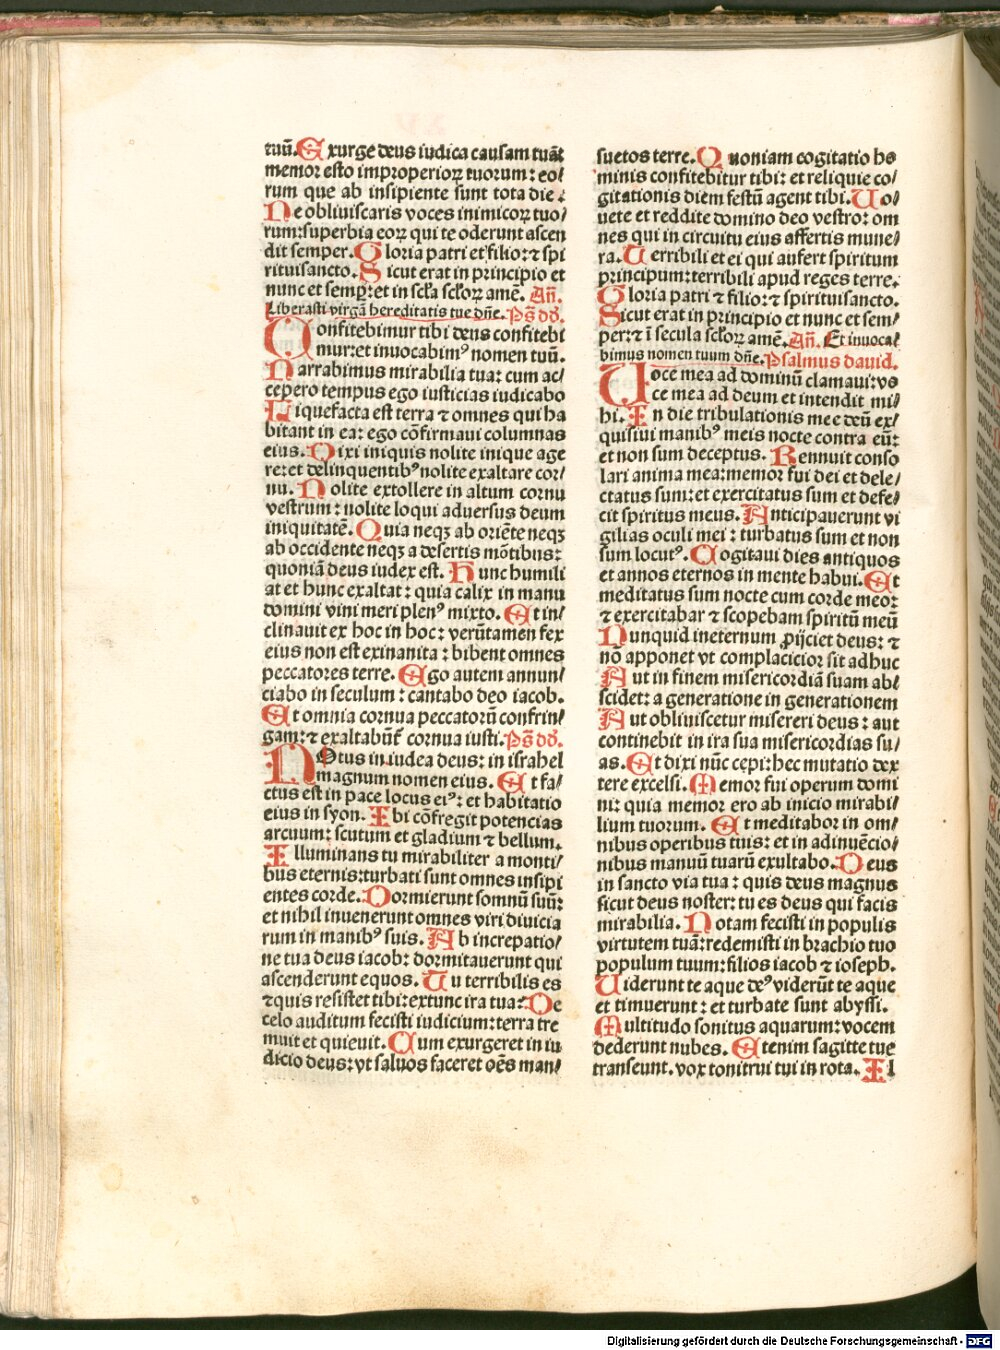 tuū. Exurge deus iudica causam tuā:
memor esto improperioꝝ tuorum: eo/
rum que ab insipiente sunt tota die.
Ne obliuiscaris voces inimicoꝝ tuo/
rum: superbia eoꝝ qui te oderunt ascen
dit semper. Gloria patri et filio: ⁊ spi
rituisancto. Sicut erat in principio et
nunc et semp: et in scľa scľoꝝ amē. Añ.
Liberasti virgā hereditatis tue dñe. Ps̄ dd̄.
Confitebimur tibi deus confitebi
mur: et inuocabimꝰ nomen tuū.
Narrabimus mirabilia tua: cum ac/
cepero tempus ego iusticias iudicabo
Liquefacta est terra ⁊ omnes qui ha
bitant in ea: ego cōfirmaui columnas
eius. Dixi iniquis nolite inique age
re: et delinquentibꝰ nolite exaltare cor/
nu. Nolite extollere in altum cornu
vestrum: nolite loqui aduersus deum
iniquitatē. Quia neqꝫ ab oriēte neqꝫ
ab occidente neqꝫ a desertis mōtibus:
quoniā deus iudex est. Hunc humili
at et hunc exaltat: quia calix in manu
domini vini meri plenꝰ mixto. Et in/
clinauit ex hoc in hoc: verūtamen fex
eius non est exinanita: bibent omnes
peccatores terre. Ego autem annun/
ciabo in seculum: cantabo deo iacob.
Et omnia cornua peccatorū confrin/
gam: ⁊ exaltabūt cornua iusti. Ps̄ dd̄.
NOtus in iudea deus: in israhel
magnum nomen eius. Et fa/
ctus est in pace locus eiꝰ: et habitatio
eius in syon. Ibi cōfregit potencias
arcuum: scutum et gladium ⁊ bellum.
Illuminans tu mirabiliter a monti/
bus eternis: turbati sunt omnes insipi
entes corde. Dormierunt somnū suū:
et nihil inuenerunt omnes viri diuicia
rum in manibꝰ suis. Ab increpatio/
ne tua deus iacob: dormitauerunt qui
ascenderunt equos. Tu terribilis es
⁊ quis resistet tibi: extunc ira tua: De
celo auditum fecisti iudicium: terra tre
muit et quieuit. Cum exurgeret in iu
dicio deus: vt saluos faceret oēs man/
suetos terre. Quoniam cogitatio ho
minis confitebitur tibi: et reliquie co/
gitationis diem festū agent tibi. Uo/
uete et reddite domino deo vestro: om
nes qui in circuitu eius affertis mune/
ra. Terribili et ei qui aufert spiritum
principum: terribili apud reges terre.
Gloria patri ⁊ filio: ⁊ spirituisancto.
Sicut erat in principio et nunc et sem/
per: ⁊ ī secula scľoꝝ amē. Añ. Et inuoca/
bimus nomen tuum dñe. Psalmus dauid.
Uoce mea ad dominū clamaui: vo
ce mea ad deum et intendit mi/
hi. In die tribulationis mee deū ex/
quisiui manibꝰ meis nocte contra eū:
et non sum deceptus. Rennuit conso
lari anima mea: memor fui dei et dele/
ctatus sum: et exercitatus sum et defe/
cit spiritus meus. Anticipauerunt vi
gilias oculi mei: turbatus sum et non
sum locutꝰ. Cogitaui dies antiquos
et annos eternos in mente habui. Et
meditatus sum nocte cum corde meo:
⁊ exercitabar ⁊ scopebam spiritū meū
Nunquid ineternum ꝓijciet deus: ⁊
nō apponet vt complacicior sit adhuc
Aut in finem misericordiā suam ab/
scidet: a generatione in generationem
Aut obliuiscetur misereri deus: aut
continebit in ira sua misericordias su/
as. Et dixi nūc cepi: hec mutatio dex
tere excelsi. Memor fui operum domi
ni: quia memor ero ab inicio mirabi/
lium tuorum. Et meditabor in om/
nibus operibus tuis: et in adinuēcio/
nibus manuū tuarū exultabo. Deus
in sancto via tua: quis deus magnus
sicut deus noster: tu es deus qui facis
mirabilia. Notam fecisti in populis
virtutem tuā: redemisti in brachio tuo
populum tuum: filios iacob ⁊ ioseph.
Uiderunt te aque deꝰ viderūt te aque
et timuerunt: et turbate sunt abyssi.
Multitudo sonitus aquarum: vocem
dederunt nubes. Etenim sagitte tue
transeunt. vox tonitrui tui in rota. Il
Digitalisierung gefördert durch die Deutsche Forschungsgemeinschaft - DFG